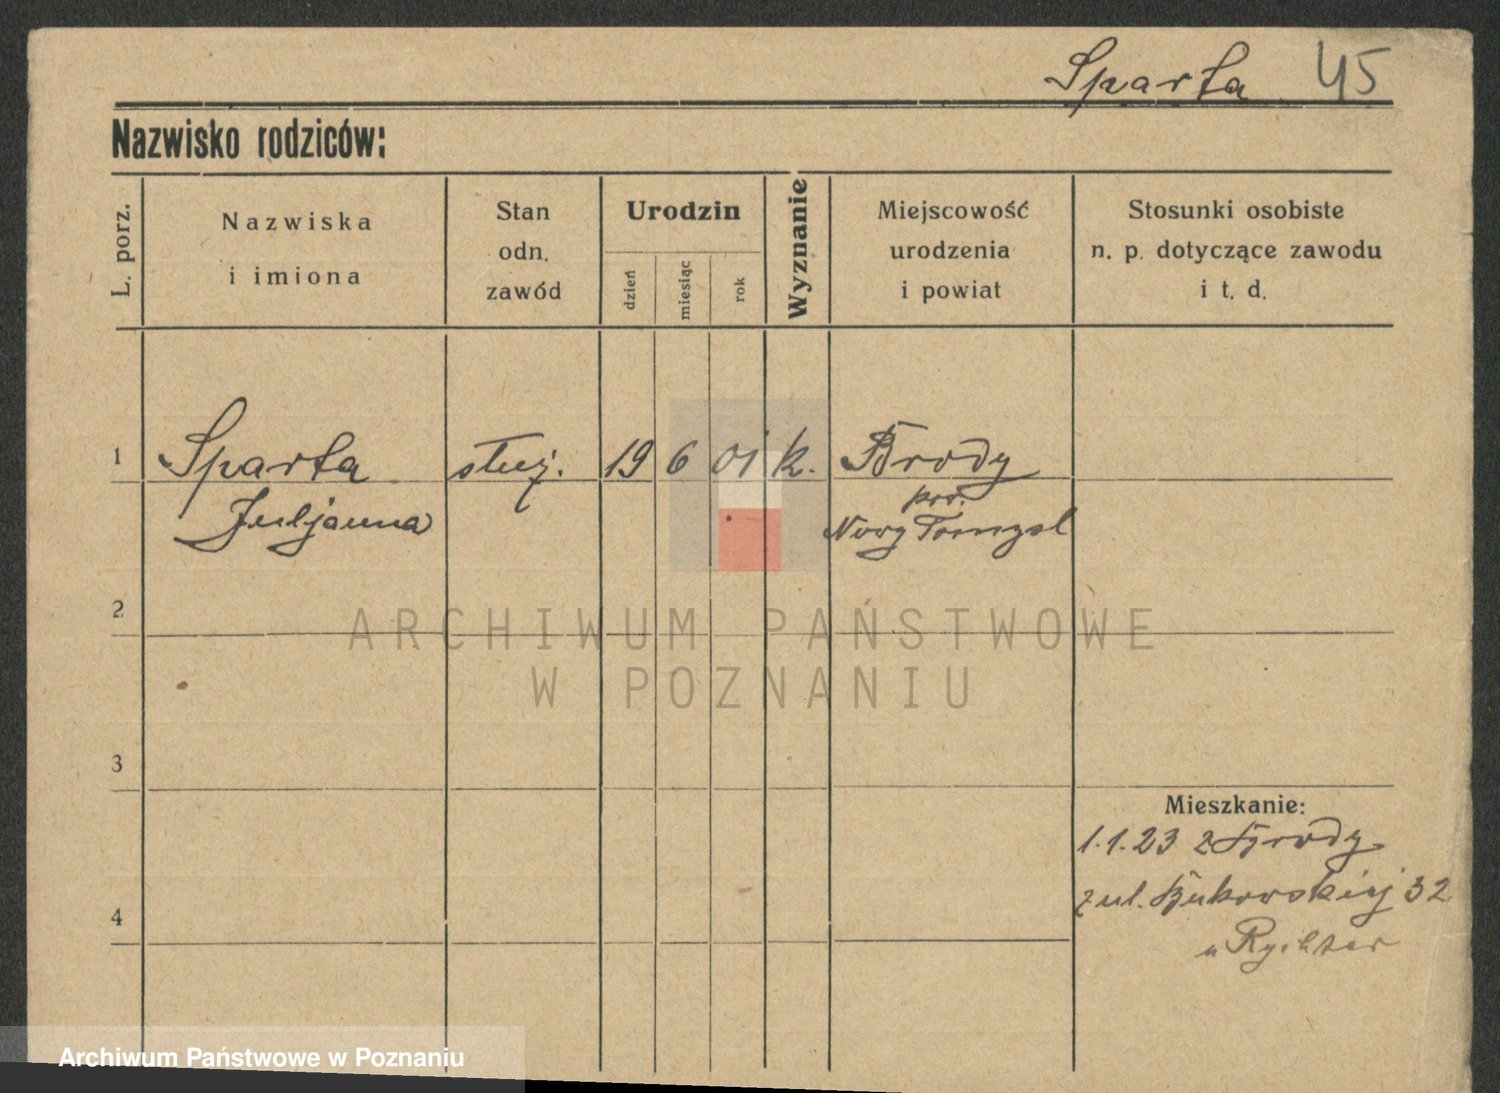 Sparta 45
Nazwisko rodziców:
L. porz.
Nazwiska
i imiona
Stan
odn.
zawód
Urodzin
dzień
miesiąc
rok
Wyznanie
Miejscowość
urodzenia
i powiat
Stosunki osobiste
n. p. dotyczące zawodu
i t. d.
1 Sparta służ. 19 6 01 k. Brody
pow.
Juljanna Nowy Tomysl
2
ARCHIWUM PAŃSTWOWE
W POZNANIU
3
Mieszkanie:
1.1.23 z Brody
z ul. Bukowskiej 32
4
u Rychter
Archiwum Państwowe w Poznaniu